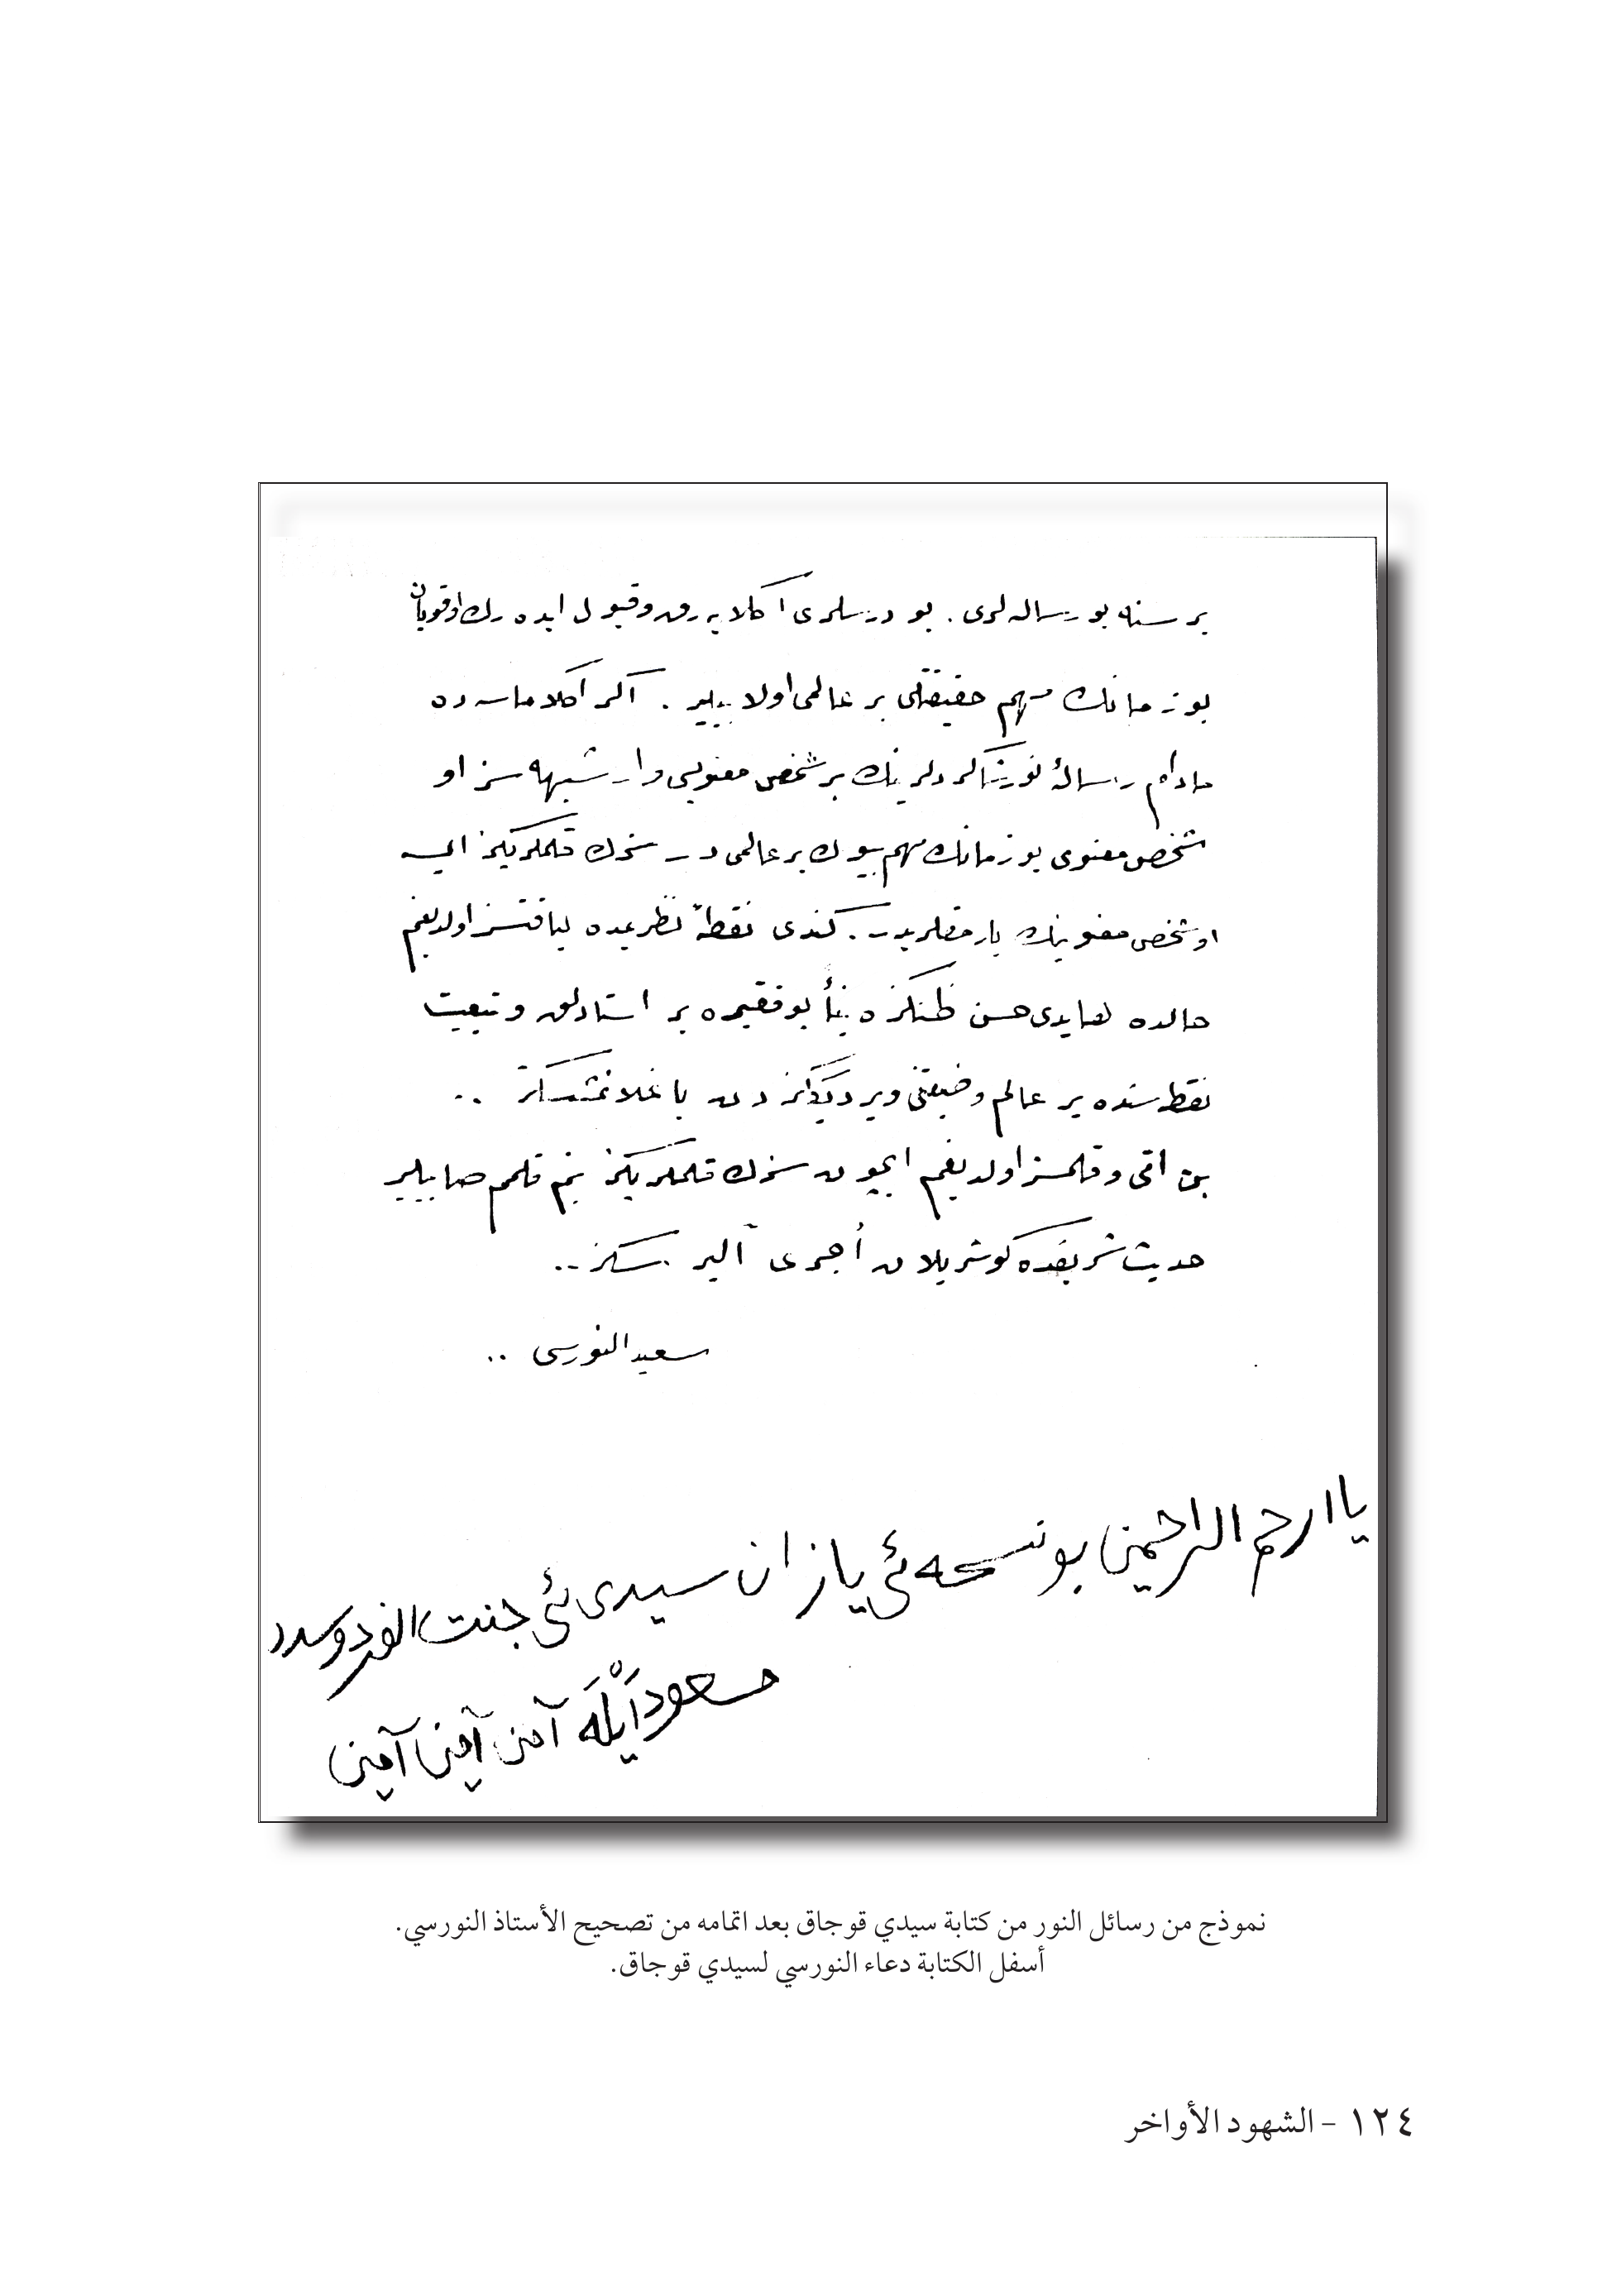 بر سنه بو رساله لرى . بو درسلرى اكلايه رق وقبول ايده رك اوقويان
بو زمانك مهم حقيقتلى بر عالمى اولا بيلير . اكر اكلاماسه ده
مادام رسالۀ نور شاكردلرينك بر شخص معنويسى وار شبهه سز او
شخص معنوى بو زمانك مهم بيوك بر عالمى در سزك قلملريكز ايسه
او شخص معنوينك پارمقلريدر . كندى نقطۀ نظريمده لياقتسز اولديغم
حالده هايدى حسن ظنكزه بنأً بو فقيره بر استادلق وتبعيت
نقطه سنده بر عالم وضعيتنى ويرديككزدن باغلانمشسكز ..
بن امى وقلمسز اولديغم ايچون سزك قلملريكز بنم قلمم صاييلير
حديث شريفده كوستريلان أجرى آليرسكز ..
سعيد النورسى ..
يا ارحم الراحمين بو نسخه ئى يازان سيدى ئى جنت الفردوسده
مسعود ايله آمين آمين آمين
نموذج من رسائل النور من كتابة سيدي قوجاق بعد اتمامه من تصحيح الأستاذ النورسي.
أسفل الكتابة دعاء النورسي لسيدي قوجاق.
١٢٤ - الشهود الأواخر